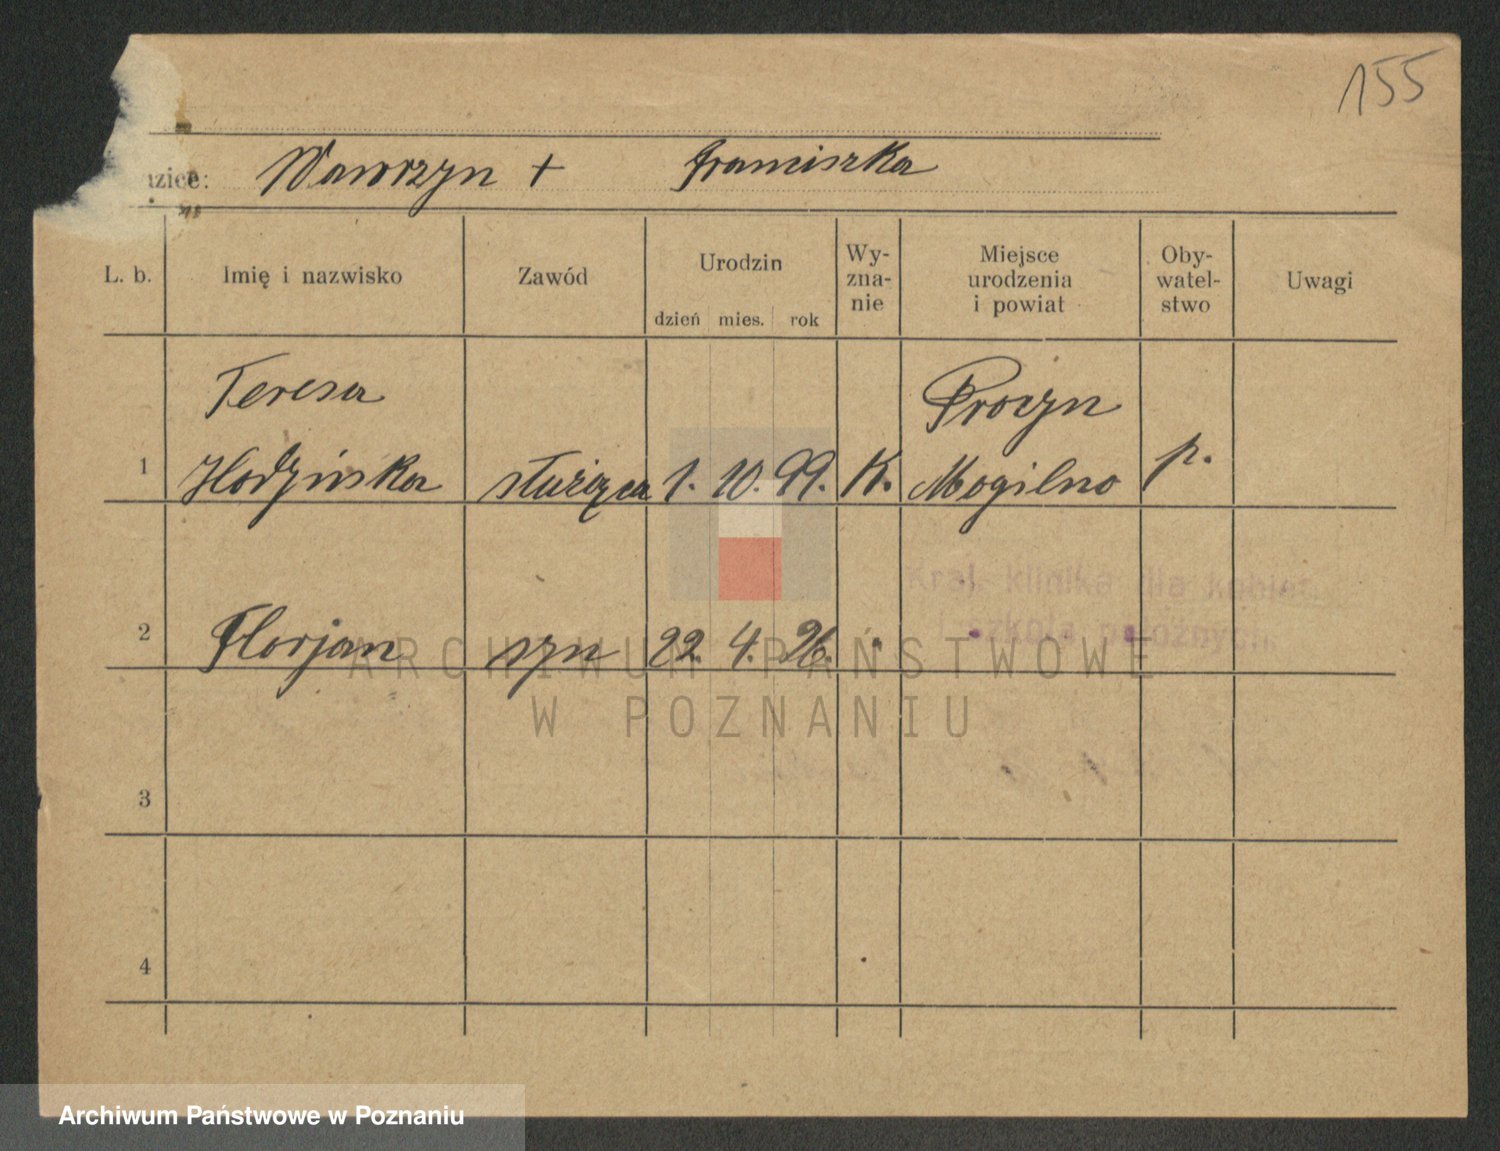 155
Wawrzyn + Franciszka
L. b. Imię i nazwisko Zawód Urodzin dzień mies. rok Wy- zna- nie Miejsce urodzenia i powiat Oby- watel- stwo Uwagi
Teresa Procyn
1 służąca 1. 10. 99. K. Mogilno p.
Kraj. klinika dla kobiet
i szkoła położnych
2 Florjan syn 22. 4. 26.
ARCHIWUM PAŃSTWOWE
W POZNANIU
3
4
Archiwum Państwowe w Poznaniu